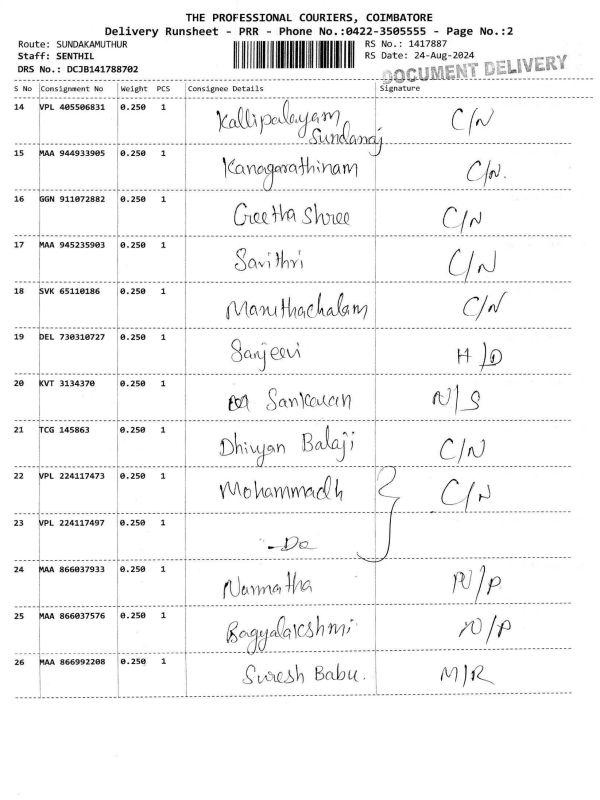 THE PROFESSIONAL COURIERS, COIMBATORE
Delivery Runsheet - PRR - Phone No.:0422-3505555 - Page No.:2
Route: SUNDAKAMUTHUR
RS No.: 1417887
Staff: SENTHIL
RS Date: 24-Aug-2024
DRS No.: DCJB141788702
DOCUMENT DELIVERY
S No Consignment No Weight PCS Consignee Details Signature
14 VPL 405506831 0.250 1 Kallipalayam Sundaraj C/N
15 MAA 944933905 0.250 1 Kanagarathinam C/N.
16 GGN 911072882 0.250 1 Greetha Shree C/N
17 MAA 945235903 0.250 1 Savithri C/N
18 SVK 65110186 0.250 1 Maruthachalam C/N
19 DEL 730310727 0.250 1 Sanjeevi H/D
20 KVT 3134370 0.250 1 Sankaran N/S
21 TCG 145863 0.250 1 Dhivyan Balaji C/N
22 VPL 224117473 0.250 1 Mohammadh C/N
23 VPL 224117497 0.250 1 -Do
24 MAA 866037933 0.250 1 Narmatha N/P
25 MAA 866037576 0.250 1 Bagyalakshmi N/P
26 MAA 866992208 0.250 1 Suresh Babu. M/R